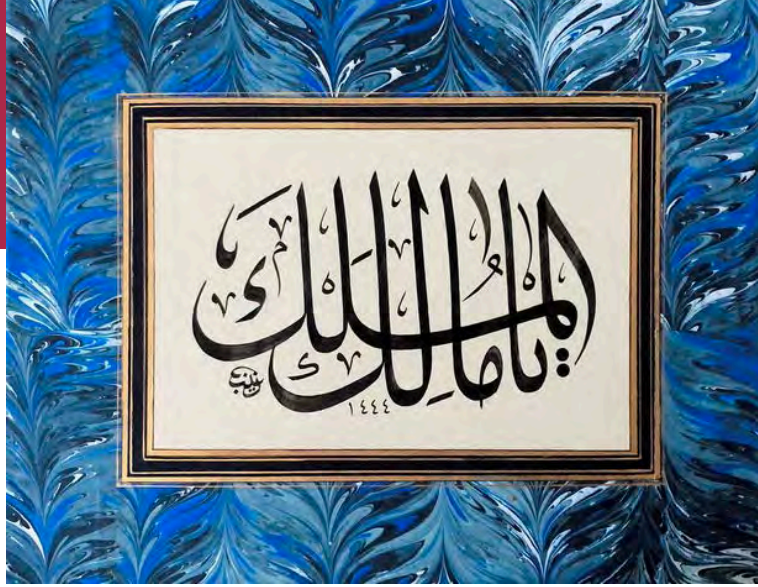 يا مالك الملك
١٤٤٤